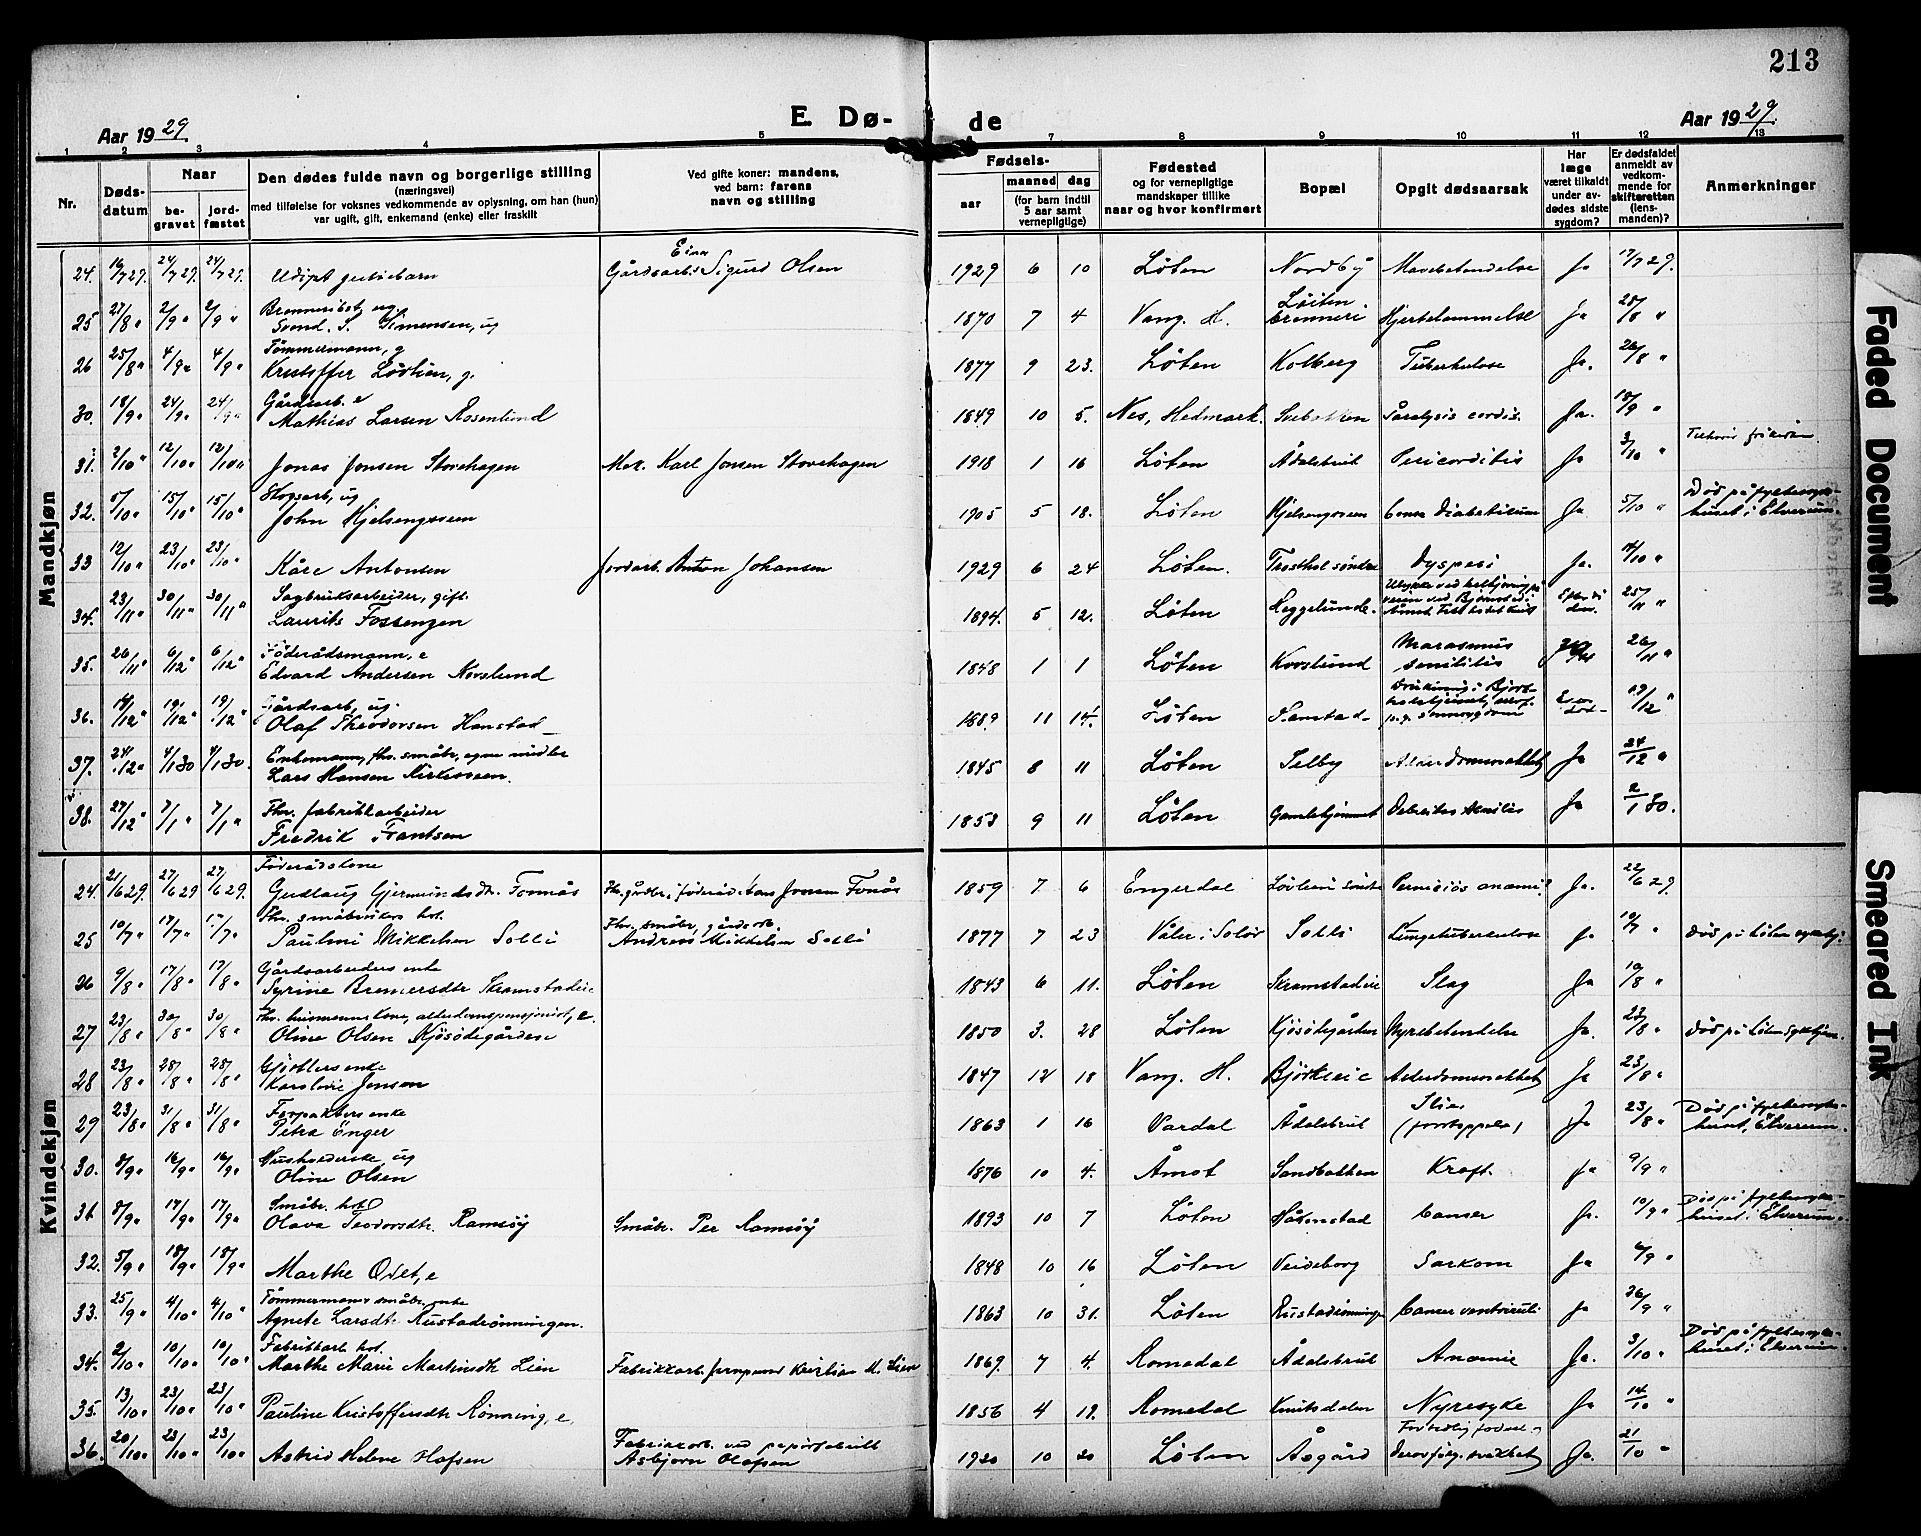 213
E. Dø- de
Aar 19 29
Aar 19 29
1 2 3 4 5 7 8 9 10 11 12 13
Nr.
Dødsdatum
Naar
begravet
jordfæstet
Den dødes fulde navn og borgerlige stilling
(næringsvei)
med tilføielse for voksnes vedkommende av oplysning, om han (hun)
var ugift, gift, enkemand (enke) eller fraskilt
Ved gifte koner: mandens,
ved barn: farens
navn og stilling
Fødsels-
aar
maaned dag
(for barn indtil
5 aar samt
vernepligtige)
Fødested
og for vernepligtige
mandskaper tillike
naar og hvor konfirmert
Bopæl
Opgit dødsaarsak
Har
læge
været tilkaldt
under av-
dødes sidste
sygdom?
Er dødsfaldet
anmeldt av
vedkom-
mende for
skifteretten
(lens-
manden)?
Anmerkninger
Mandkjøn
24. 16/7 29. 24/7 29. 24/7 29. Udøpt guttebarn Gårdsarb. Einar Sigurd Olsen 1929 6 10 Løten Nordby Ja 17/7 29.
25 27/8 " 2/9 " 2/9 " Svend. S. Simensen, ug 1870 7 4 Vang. H. Løiten brenneri Hjertelammelse Ja 28/8 "
26 25/8 " 4/9 " 4/9 " Tømmermann, g Kristoffer Løvlien, g. 1877 9 23. Løten Kolberg Tuberkulose Ja. 26/8 "
30. 18/9 " 24/9 " 24/9 " Gårdsarb. e Mathias Larsen Rosenlund 1849 10 5. Nes, Hedmark. Paralysis cordis. Ja. 18/9 "
31. 2/10 " 12/10 " 12/10 " Jonas Jonsen Stovehagen Karl Jonsen Stovehagen 1918 1 16 Løten Ådalsbruk Pericorditis Ja 3/10 " Tilhører frikirken
32. 5/10 " 15/10 " 15/10 " Skogsarb, ug John Hjelsengsveen 1905 5 18. Løten Hjelsengsveen Coma diabeticum Ja 5/10 " Død på fylkessyke-
huset i Elverum.
33 12/10 " 23/10 " 23/10 " Kåre Antonsen Jordarb. Anton Johansen 1929 6 24 Løten. Trosthol søndre Dyspepsi Ja. 14/10 "
34. 23/11 " 30/11 " 30/11 " Sagbruksarbeider, gift. Laurits Fossengen 1894. 5 12. Løten Heggelund 25/11 "
35. 26/11 " 6/12 " 6/12 " Føderådsmann, e Edvard Andersen Kovslund 1848 1 1 Løten Kovslund Marasmus senilitis 26/11 "
36. 19/12 " 19/12 " Gårdsarb, ug. Olaf Theodorsen Hanstad 1889 11 14. Løten 19/12 "
37. 24/12 " 4/1 30 4/1 30. Enkemann, fhv. småbr, egne midler Lars Hansen Kirkesveen. 1845 8 11 Løten Selby Alderdomssvakhet Ja 24/12 "
38. 27/12 " 7/1 " 7/1 " Fhv. fabrikkarbeider Fredrik Frantsen 1853 9 11 Løten Gamlekjømmet Debilitas senilis Ja 2/1 30.
Kvindekjøn
24. 21/6 29. 27/6 29 27/6 29. Føderådskone Gudlaug Gjermundsdtr. Tonnås Fhv. gårdbr., føderåd Hans Jonsen Tonås 1859 7 6 Engerdal Løvlien søndre Perniciøs anæmi Ja. 22/6 29.
25 10/7 " 17/7 " 17/7 " Fhv. småbrukers hst. Paulini Mikkelsen Solli Fhv, småbr, gårdsarb. Andreas Mikkelsen Solli 1877 7 23 Våler i Solør Solli Lungetuberkulose Ja 10/7 " Død på Løten sykehj.
26 9/8 " 17/8 " 17/8 " Gårdsarbeiders enke Syrine Bremersdtr Skramstadeie 1843 6 11. Løten Skramstadeie Slag Ja 10/8 "
27 23/8 " 30/8 " 30/8 " Fhv. husmannskone, alderdomspensjonist, e. Oline Olsen Kjøsødegården 1850 3. 28 Løten Kjøsødegården Nyrebetendelse Ja. 23/8 " Død på Løten sykehjem.
28 23/8 " 28/8 " 28/8 " Gjørtlers enke Karoline Jensen 1847 12 18 Vang. H. Bjørkleie Alderdomssvakhet Ja 23/8 "
29 23/8 " 31/8 " 31/8 " Forpakters enke Petra Enger 1863 1 16 Vardal Ådalsbruk Ja 23/8 " Død på fylkessyke-
huset, Elverum.
30. 8/9 " 16/9 " 16/9 " Husholderske ug Oline Olsen 1876 10 4. Åmot Sandbakken Kreft. Ja 9/9 "
31 8/9 " 17/9 " 17/9 " Småbr. hst Olava Teodorsdtr. Ramsøy Småbr. Per Ramsøy 1893 10 7 Løten Håkenstad Canser Ja. 10/9 " Død på fylkessyke-
huset i Elverum.
32. 5/9 " 18/9 " 18/9 " Marthe Odet, e 1848 10 16 Løten Veideborg Sarkom Ja 6/9 "
33. 25/9 " 4/10 " 4/10 " Tømmermann småbr. enke Agnete Larsdtr Rustadrønningen. 1863 10 31. Løten Rustadrønningen Canser ventriculi Ja 26/9 "
34. 2/10 " 10/10 " 10/10 " Fabrikkarb. hst. Marthe Marie Martinsdtr Lien Fabrikkarb. Kristian M. Lien 1869. 7 4. Romedal Ådalsbruk Anæmie Ja. 3/10 " Død på fylkessyke-
huset i Elverum.
35. 13/10 " 23/10 " 23/10 " Pauline Kristoffersdtr Rønning, e 1856 4 19. Romedal Knutsdalen Nyresyke Ja 14/10 "
36. 20/10 " 23/10 " 23/10 " Astrid Helene Olafsen Fabrikkarb. ved papirfabrikk Asbjørn Olafsen 1920 10 20 Løten Åsgård Ja. 21/10 "
Faded Document
Smeared Ink